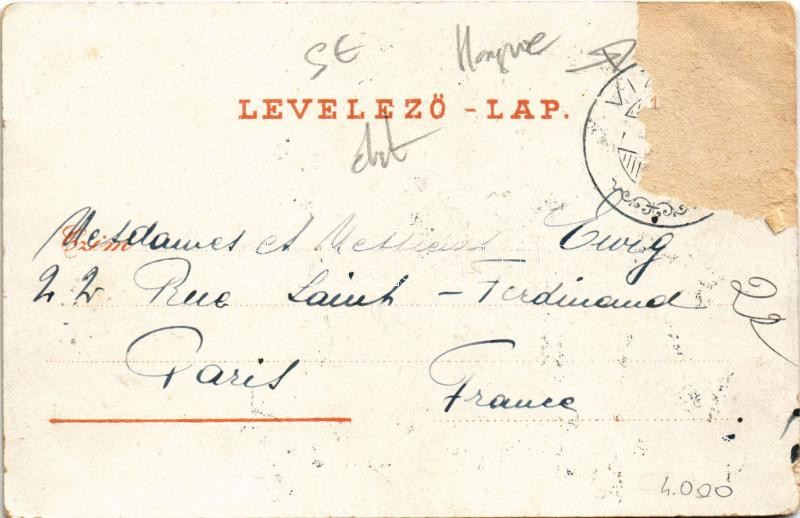 SE Hongrie
LEVELEZŐ-LAP.
Czím
Mesdames et Messieurs Ewig
22 Rue Saint-Ferdinand
22
Paris
France
4.000